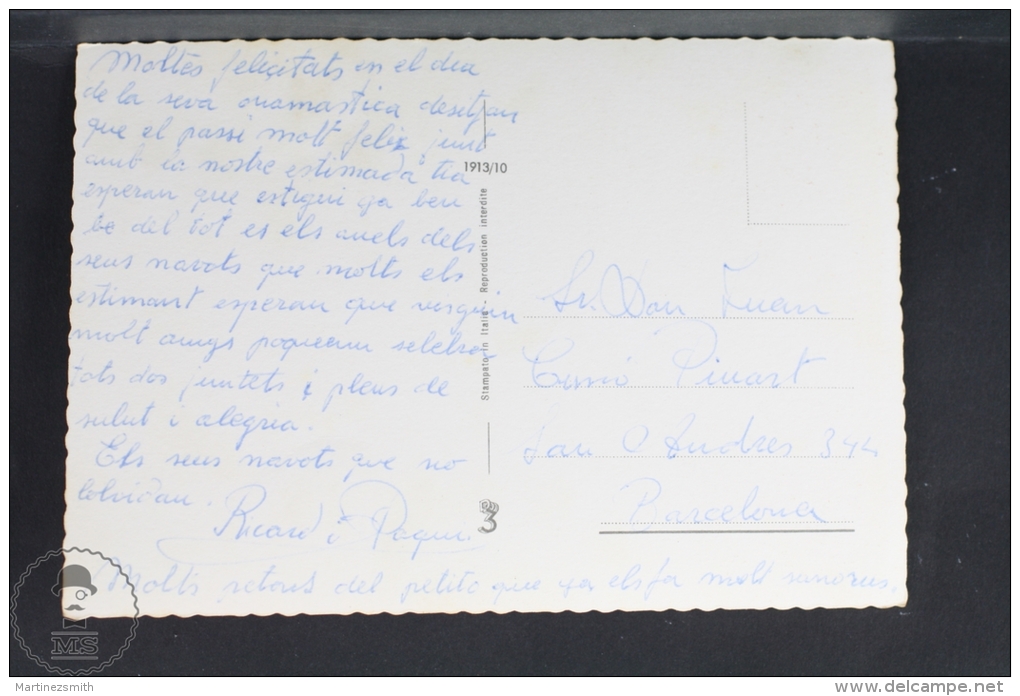 Moltes feliçitats en el dia
de la seva onamastica desitjan
que el passi molt felix junt
amb la nostre estimada tia
esperan que estigui ja ben
be del tot es els anels dels
seus navots que molts els
estimant esperan que visquin
molt anys poguem selebra
tots dos juntets i plens de
salut i alegria.
Els seus navots que no
lolvidan.
Ricard i Paqui.
Molts petons del petito que ja els fa molt sunorus.
1913/10
Stampato in Italia - Reproduction interdite
3
Sr. Don Juan
Cusió Pinart
San Andres 344
Barcelona
MS
Martinezsmith
www.delcampe.net